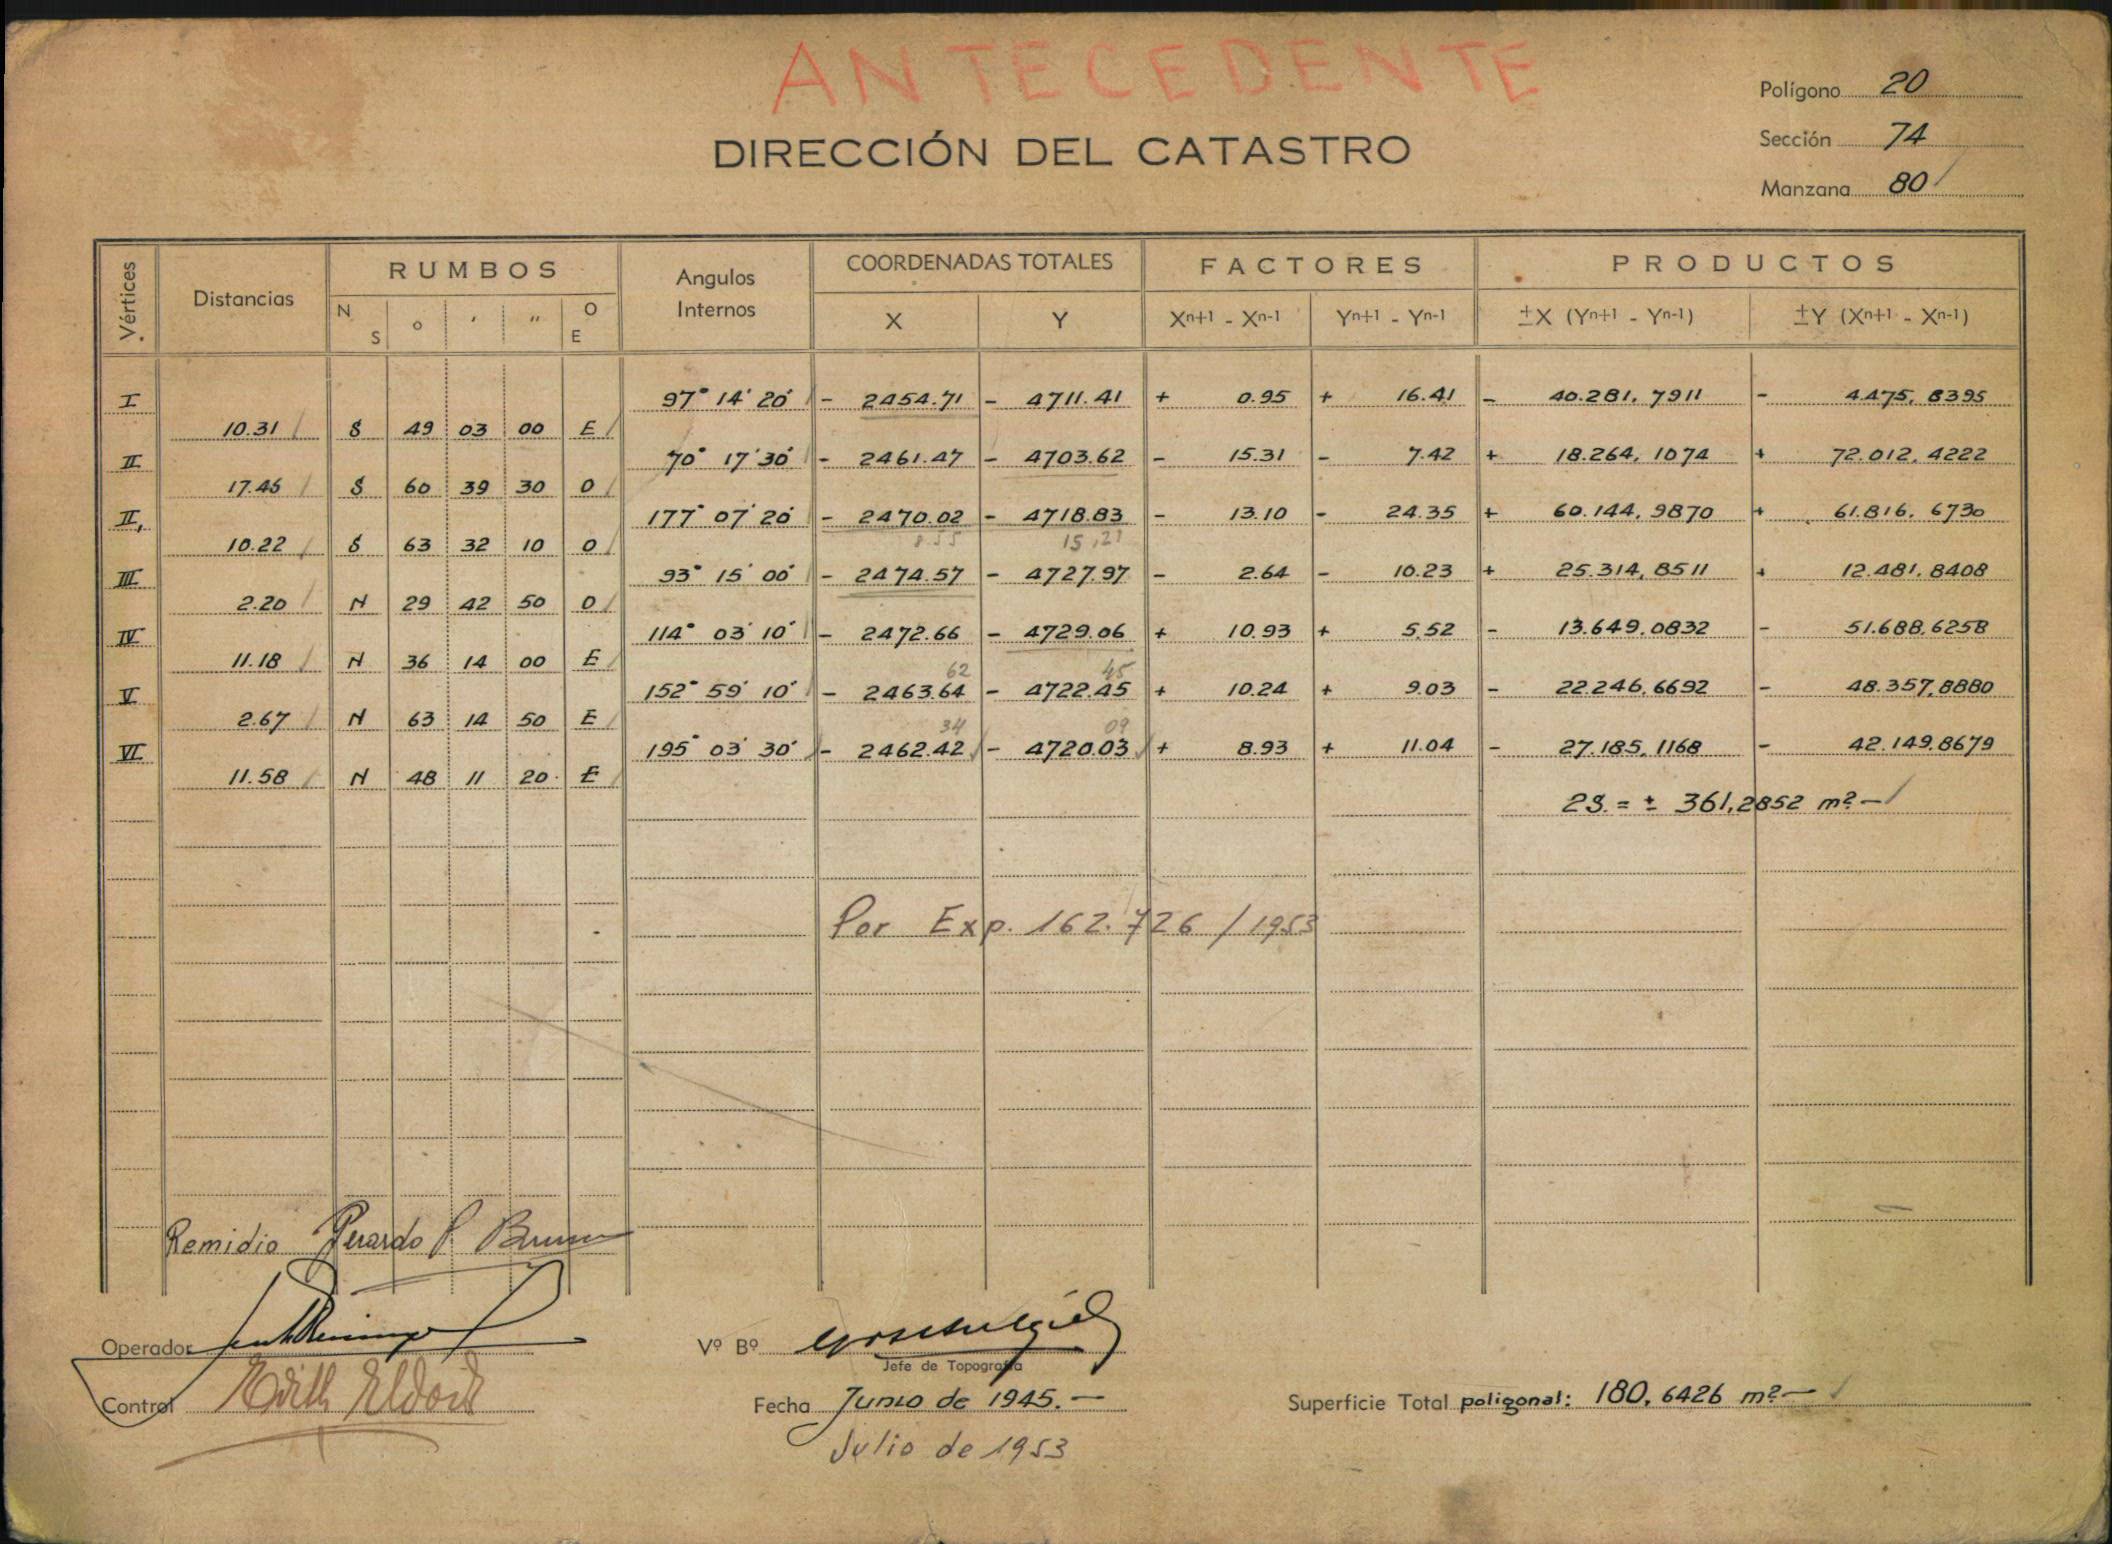 ANTECEDENTE
DIRECCIÓN DEL CATASTRO
Polígono 20
Sección 74
Manzana 80
Vértices Distancias RUMBOS Angulos Internos COORDENADAS TOTALES FACTORES PRODUCTOS
N S o ' " O E X Y Xn+1 - Xn-1 Yn+1 - Yn-1 ±X (Yn+1 - Yn-1) ±Y (Xn+1 - Xn-1)
I 97° 14' 20" - 2454.71 - 4711.41 + 0.95 + 16.41 - 40.281,7911 - 4.475,8395
10.31 S 49 03 00 E
II 70° 17' 30" - 2461.47 - 4703.62 - 15.31 - 7.42 + 18.264,1074 + 72.012,4222
17.45 S 60 39 30 O
II, 177° 07' 20" - 2470.02 - 4718.83 - 13.10 - 24.35 + 60.144,9870 + 61.816,6730
8.55 15,21
10.22 S 63 32 10 O
III 93° 15' 00" - 2474.57 - 4727.97 - 2.64 - 10.23 + 25.314,8511 + 12.481,8408
2.20 N 29 42 50 O
IV 114° 03' 10" - 2472.66 - 4729.06 + 10.93 + 5.52 - 13.649.0832 - 51.688,6258
11.18 N 36 14 00 E
62 45
V 152° 59' 10" - 2463.64 - 4722.45 + 10.24 + 9.03 - 22.246,6692 - 48.357,8880
2.67 N 63 14 50 E
34 09
VI 195° 03' 30" - 2462.42 - 4720.03 + 8.93 + 11.04 - 27.185,1168 - 42.149,8679
11.58 N 48 11 20 E
2S. = ± 361,2852 m2.-
Por Exp. 162.726 / 1953
Remidio Gerardo P. Bruno
Operador
Vº Bº
Jefe de Topografía
Control Edith
Fecha Junio de 1945.-
Superficie Total poligonal: 180,6426 m2.-
Julio de 1953